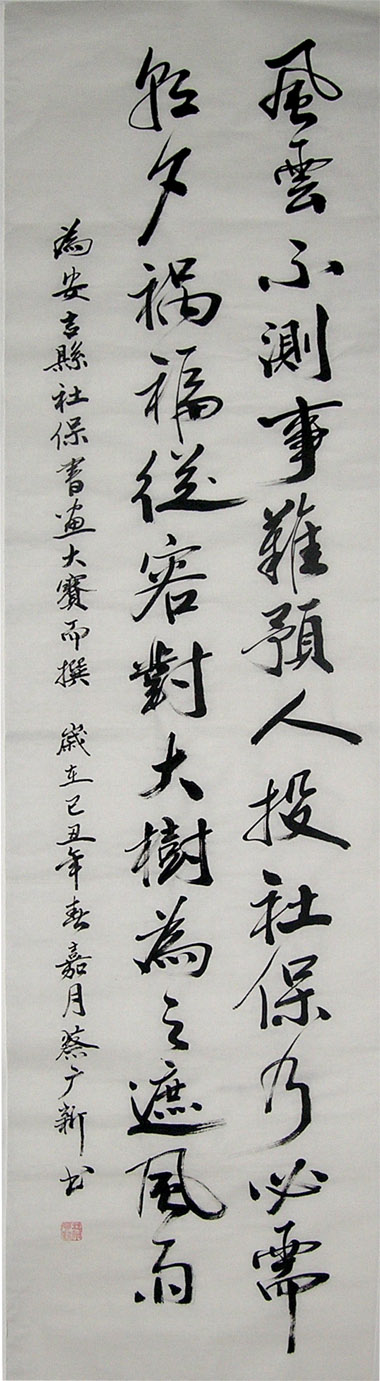 風雲不測事難預人投社保乃必需
朝夕祸福從容對大樹為之遮風雨
為安吉縣社保書画大賽而撰 歲在己丑年春嘉月蔡广新书